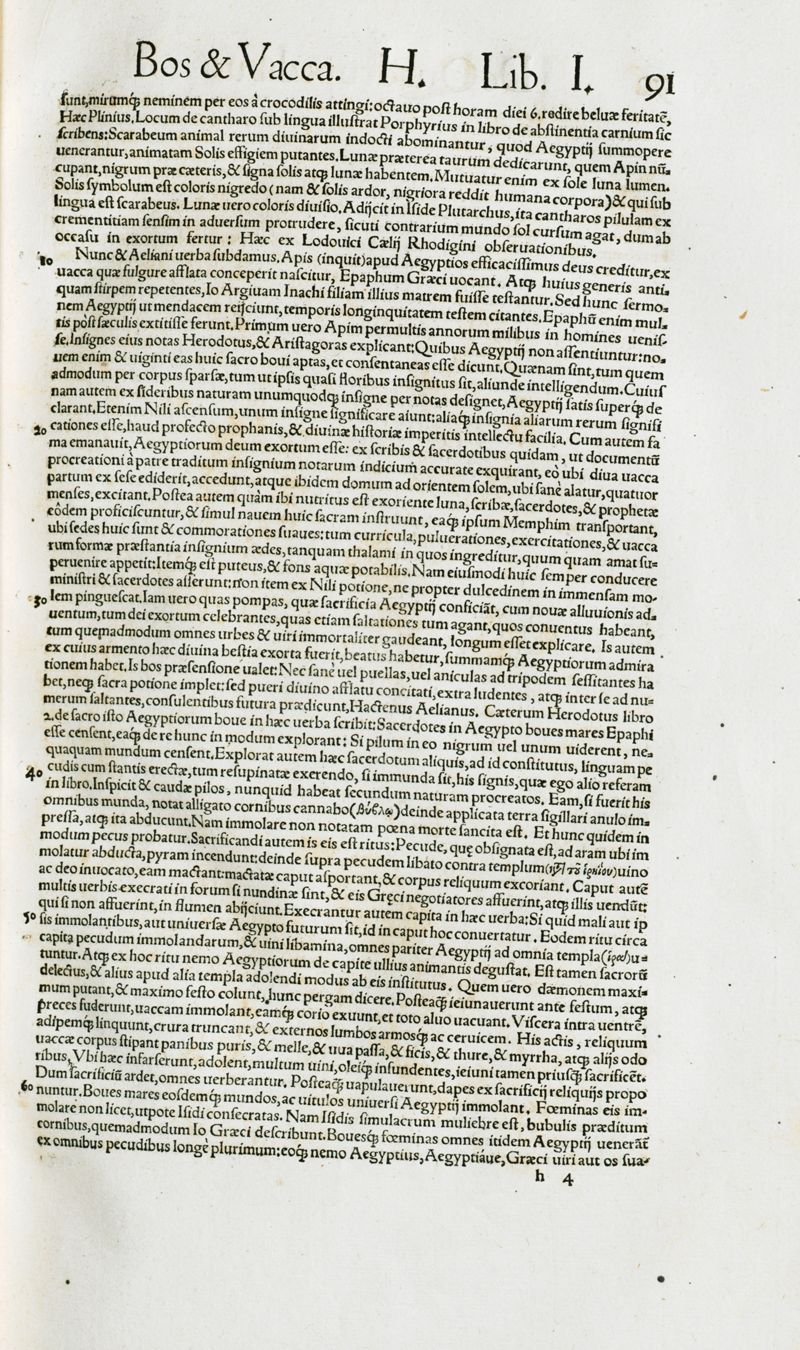 Bos & Vacca. H. Lib. I. 91
sunt, mirumq́ neminem per eos à crocodilis attingi: octauo post horam diei 6. redire beluæ feritatē,
Hæc Plinius. Locum de cantharo sub lingua illustrat Porphyrius in libro de abstinentia carnium sic
scribens: Scarabeum animal rerum diuinarum indocti abominantur, quod Aegyptij summopere
uenerantur, animatam Solis effigiem putantes. Lunæ præterea taurum dedicarunt, quem Apin nū⸗
cupant, nigrum præ cæteris, & signa solis atq́ lunæ habentem. Mutuatur enim ex sole luna lumen.
Solis symbolum est coloris nigredo (nam & solis ardor, nigriora reddit humana corpora) & qui sub
lingua est scarabeus. Lunæ uero coloris diuisio. Adijcit in Iside Plutarchus, ita cantharos pilulam ex
crementitiam sensim in aduersum protrudere, sicuti contrarium mundo sol cursum agat, dum ab
occasu in exortum fertur: Hæc ex Lodouici Cælij Rhodigini obseruationibus.
10 Nunc & Aeliani uerba subdamus. Apis (inquit) apud Aegyptios efficacissimus deus creditur, ex
uacca quæ fulgure afflata conceperit nascitur, Epaphum Græci uocant. Atq́ huius generis anti⸗
quam stirpem repetentes, Io Argiuam Inachi filiam illius matrem fuisse testantur. Sed hunc sermo⸗
nem Aegyptij ut mendacem reijciunt, temporis longinquitatem testem citantes. Epaphū enim mul⸗
tis pòst sæculis extitisse ferunt. Primum uero Apim permultis annorum milibus in homines uenis⸗
se. Insignes eius notas Herodotus, & Aristagoras explicant: Quibus Aegyptij non assentiuntur: no⸗
uem enim & uiginti eas huic sacro boui aptas, et consentaneas esse dicunt, Quænam sint, tum quem
admodum per corpus sparsæ, tum ut ipsis quasi floribus insignitus sit, aliunde intelligendum. Cuius
nam autem ex sideribus naturam unumquodq́ insigne per notas designet, Aegyptij satis superq́ de
clarant. Etenim Nili ascensum, unum insigne significare aiunt: aliaq́ insignia aliarum rerum signifi
20 cationes esse, haud profecto prophanis, & diuinæ historiæ imperitis intellectu facilia. Cum autem fa
ma emanauit, Aegyptiorum deum exortum esse: ex scribis & sacerdotibus quidam, ut documentū
procreationi à patre traditum insignium notarum indicium accurate exquirant, eò ubi diua uacca
partum ex sese ediderit, accedunt, atque ibidem domum ad orientem solem, ubi sanè alatur, quatuor
menses, excitant. Postea autem quàm ibi nutritus est exoriente luna, scribæ, sacerdotes, & prophetæ
eòdem proficiscuntur, & simul nauem huic sacram instruunt, eaq́ ipsum Memphim transportant,
ubi sedes huic sunt & commorationes suaues: tum curricula, puluerationes, exercitationes, & uacca
rum formæ præstantia insignium ædes, tanquam thalami in quos ingreditur, quum quam amat su⸗
peruenire appetit: Itemq́ est puteus, & fons aquæ potabilis. Nam eiusmodi huic semper conducere
ministri & sacerdotes asserunt: non item ex Nili potione, ne propter dulcedinem in immensam mo⸗
30 lem pinguescat. Iam uero quas pompas, quæ sacrificia Aegyptij conficiāt, cum nouæ alluuionis ad⸗
uentum, tum dei exortum celebrantes, quas etiam saltationes tum agant, quos conuentus habeant,
tum quemadmodum omnes urbes & uiri immortaliter gaudeant, longum esset explicare. Is autem
ex cuius armento hæc diuina bestia exorta fuerit, beatus habetur, summamq́ Aegyptiorum admira
tionem habet. Is bos præsensione ualet: Nec sanè uel puellas, uel aniculas ad tripodem sessitantes ha
bet, neq́ sacra potione implet: sed pueri diuino afflatu concitati, extra ludentes, atq́ inter se ad nu⸗
merum saltantes, consulentibus futura prædicunt, Hactenus Aelianus. Cæterum Herodotus libro
2. de sacro isto Aegyptiorum boue in hæc uerba scribit: Sacerdotes in Aegypto boues mares Epaphi
esse censent, eaq́ de re hunc in modum explorant: Si pilum in eo nigrum uel unum uiderent, ne⸗
quaquam mundum censent. Explorat autem hæc sacerdotum aliquis, ad id constitutus, linguam pe
40 cudis cum stantis erectæ, tum resupinatæ exerendo, si immunda sit, his signis, quæ ego alio referam
in libro. Inspicit & caudæ pilos, nunquid habeat secundum naturam procreatos. Eam, si fuerit his
omnibus munda, notat alligato cornibus cannabo (βύβλῳ) deinde applicata terra sigillari anulo im⸗
pressa, atq́ ita abducunt. Nam immolare non notatam pœna morte sancita est. Et hunc quidem in
modum pecus probatur. Sacrificandi autem is eis est ritus: Pecude, quę obsignata est, ad aram ubi im
molatur abducta, pyram incendunt: deinde supra pecudem libato contra templum (ἐπὶ τοῦ ἱρηΐου) uino
ac deo inuocato, eam mactant: mactatæ caput asportant, & corpus reliquum excoriant. Caput autē
multis uerbis execrati in forum si nundinæ sint, & eis Gręci negotiatores affuerint, atq́ illis uendūt:
qui si non affuerint, in flumen abijciunt. Execrantur autem capita in hæc uerba: Si quid mali aut ip
50 sis immolantibus, aut uniuersæ Aegypto futurum sit, id in caput hoc conuertatur. Eodem ritu circa
capita pecudum immolandarum, & uini libamina, omnes pariter Aegyptij ad omnia templa (ἱρὰ) u⸗
tuntur. Atq́ ex hoc ritu nemo Aegyptiorum de capite ullius animantis degustat. Est tamen sacrorū
delectus, & alius apud alia templa adolendi modus ab eis institutus. Quem uero dæmonem maxi⸗
mum putant, & maximo festo colunt, hunc pergam dicere. Posteaq́ ieiunauerunt ante festum, atq́
preces fuderunt, uaccam immolant, eamq́ corio exuunt, et toto aluo uacuant. Viscera intra uentrē,
adipemq́ linquunt, crura truncant, & externos lumbos armosq́ ac ceruicem. His actis, reliquum
uaccæ corpus stipant panibus puris, & melle, & uua passa, & ficis, & thure, & myrrha, atq́ alijs odo
ribus, Vbi hæc infarserunt, adolent, multum uini, oleiq́ infundentes, ieiuni tamen priusq́ sacrificēt.
Dum sacrificiū ardet, omnes uerberantur. Posteaq́ uapulauerunt, dapes ex sacrificij reliquijs propo
60 nuntur. Boues mares eosdemq́ mundos, ac uitulos uniuersi Aegyptij immolant. Fœminas eis im⸗
molare non licet, utpote Isidi consecratas. Nam Isidis simulacrum muliebre est, bubulis præditum
cornibus, quemadmodum Io Græci describunt. Bouesq́ fœminas omnes itidem Aegyptij uenerāt̄
ex omnibus pecudibus longè plurimum: eoq́ nemo Aegyptius, Aegyptiáue, Græci uiri aut os sua⸗
h 4